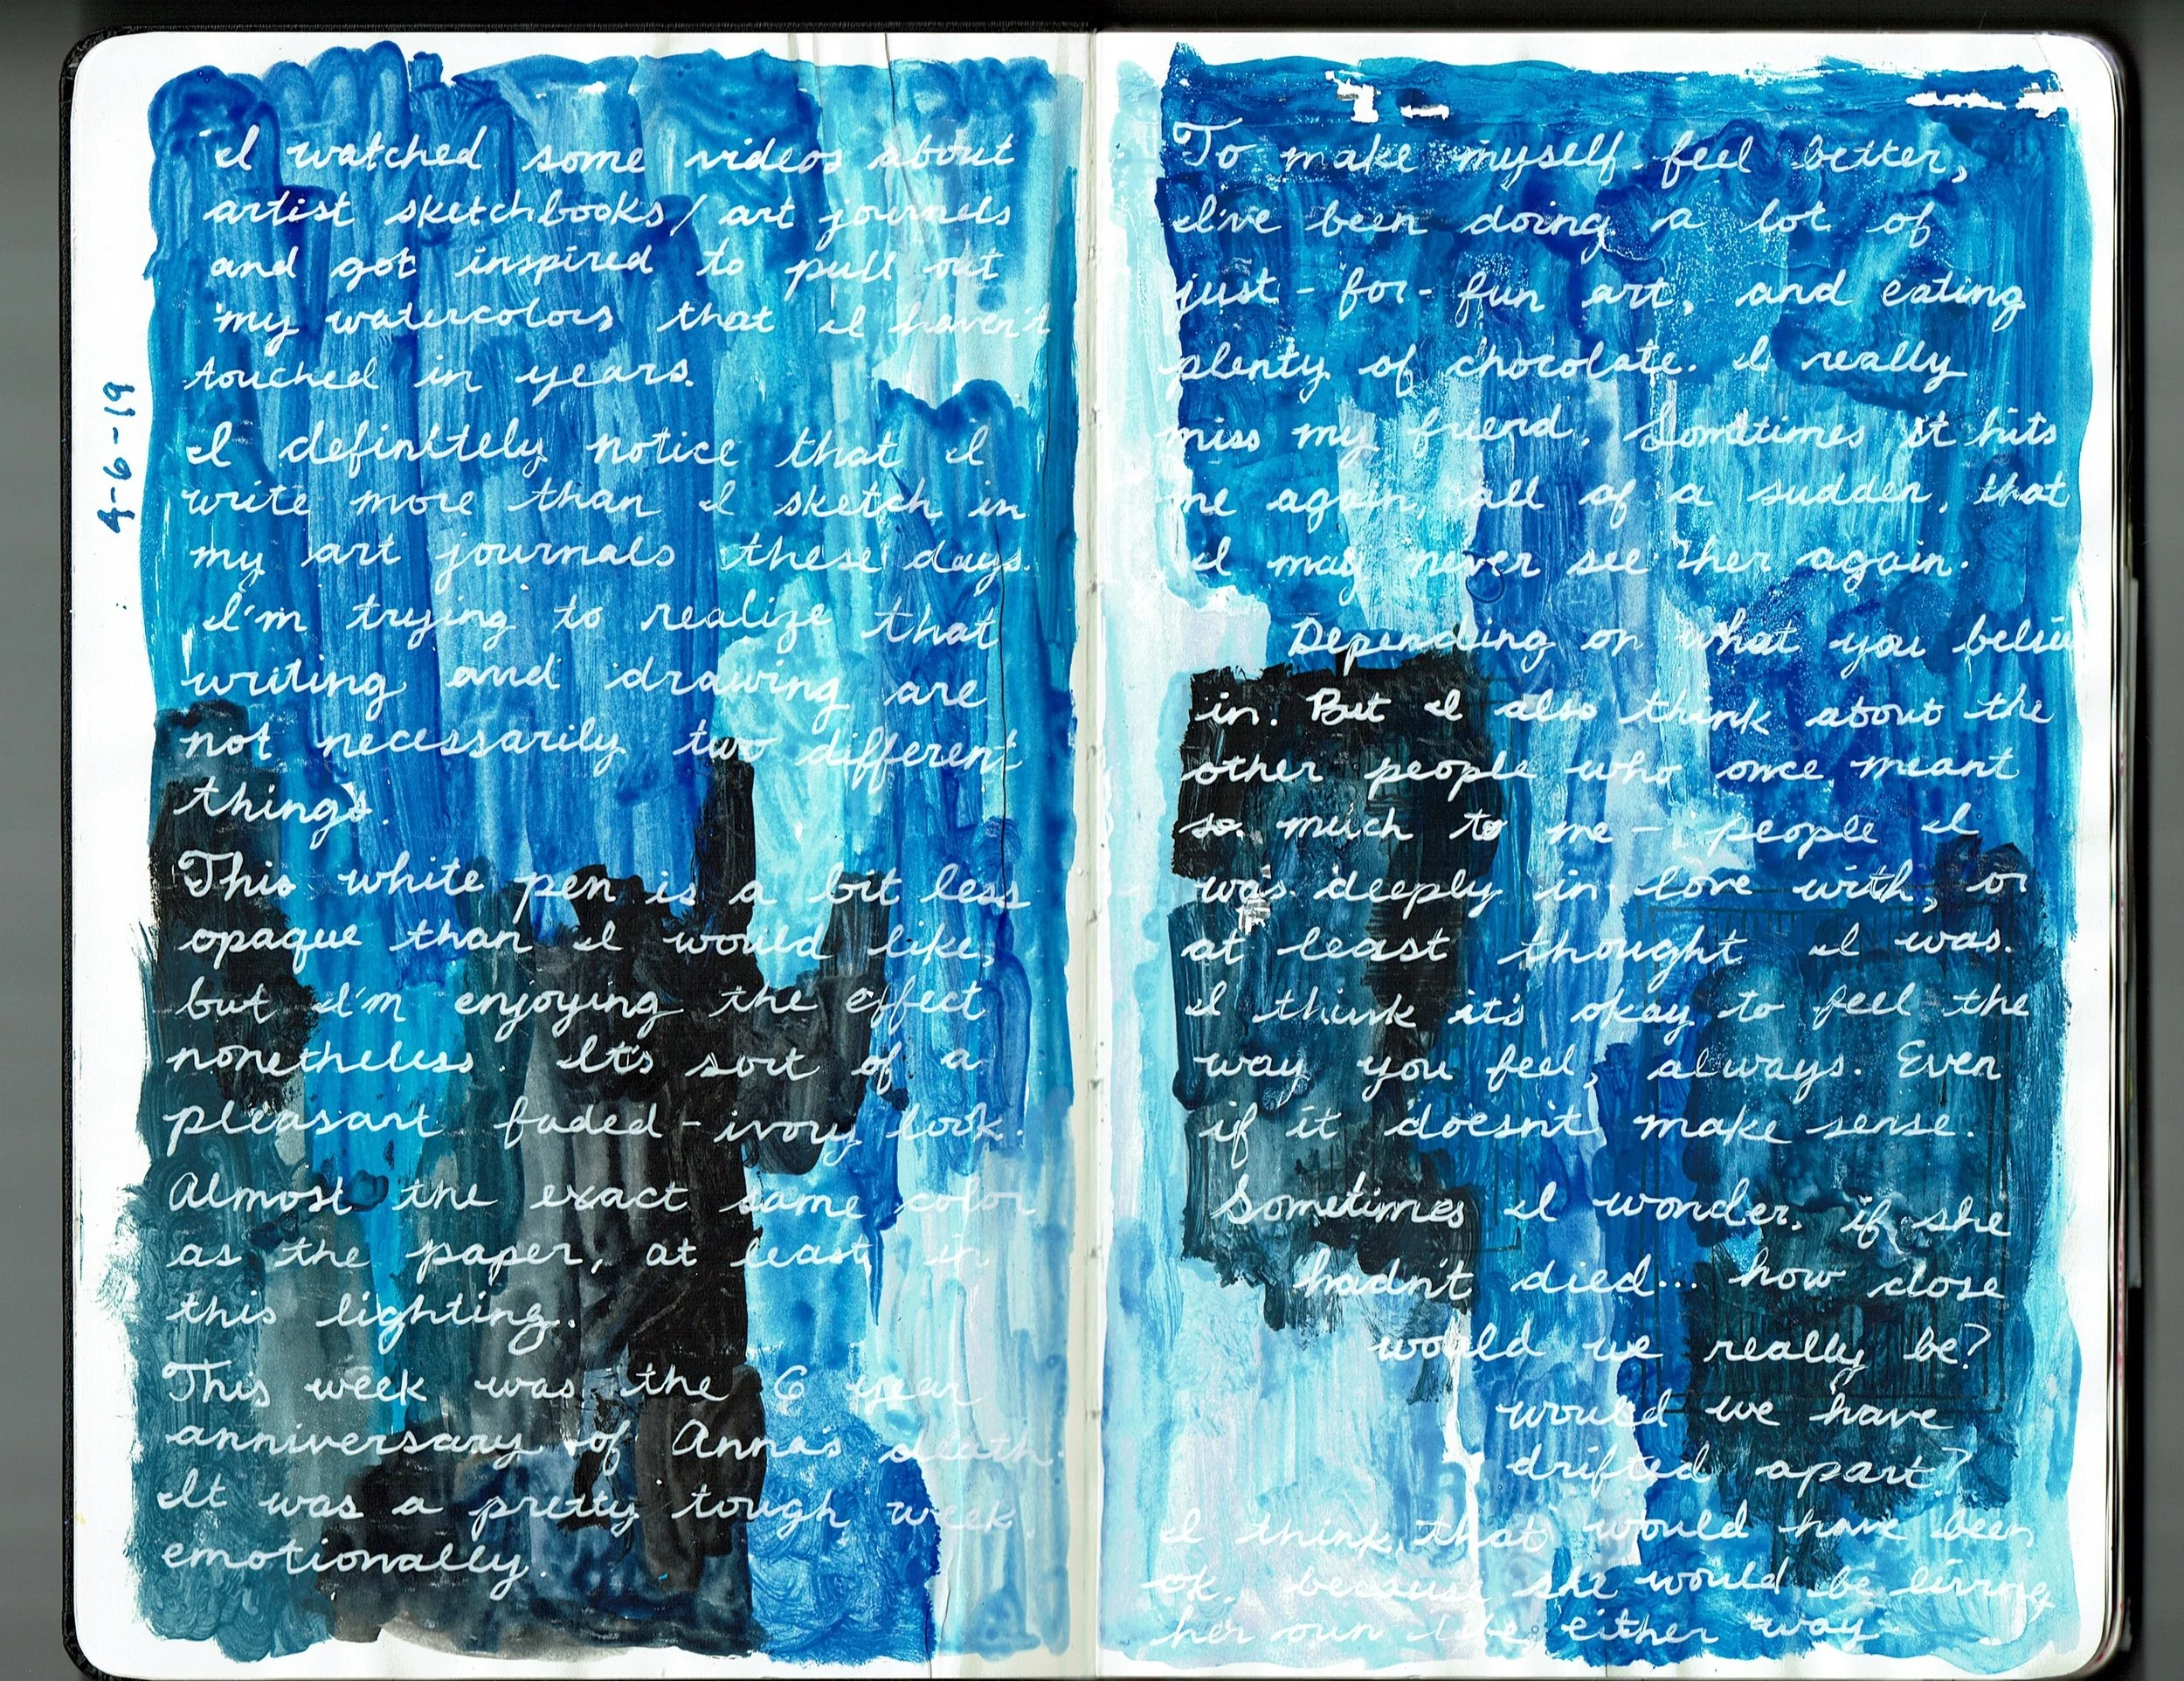 4-6-19
I watched some videos about
artist sketchbooks/art journals
and got inspired to pull out
my watercolors that I haven't
touched in years.
I definitely notice that I
write more than I sketch in
my art journals these days.
I'm trying to realize that
writing and drawing are
not necessarily two different
things.
This white pen is a bit less
opaque than I would like,
but I'm enjoying the effect
nonetheless. It's sort of a
pleasant faded-ivory look.
Almost the exact same color
as the paper, at least in
this lighting.
This week was the 6 year
anniversary of Anna's death.
It was a pretty tough week,
emotionally.
To make myself feel better,
I've been doing a lot of
just-for-fun art, and eating
plenty of chocolate. I really
miss my friend. Sometimes it hits
me again, all of a sudden, that
I may never see her again.
Depending on what you believe
in. But I also think about the
other people who once meant
so much to me - people I
was deeply in love with, or
at least thought I was.
I think it's okay to feel the
way you feel, always. Even
if it doesn't make sense.
Sometimes I wonder, if she
hadn't died... how close
would we really be?
would we have
drifted apart?
I think that would have been
ok. because she would be living
her own life, either way